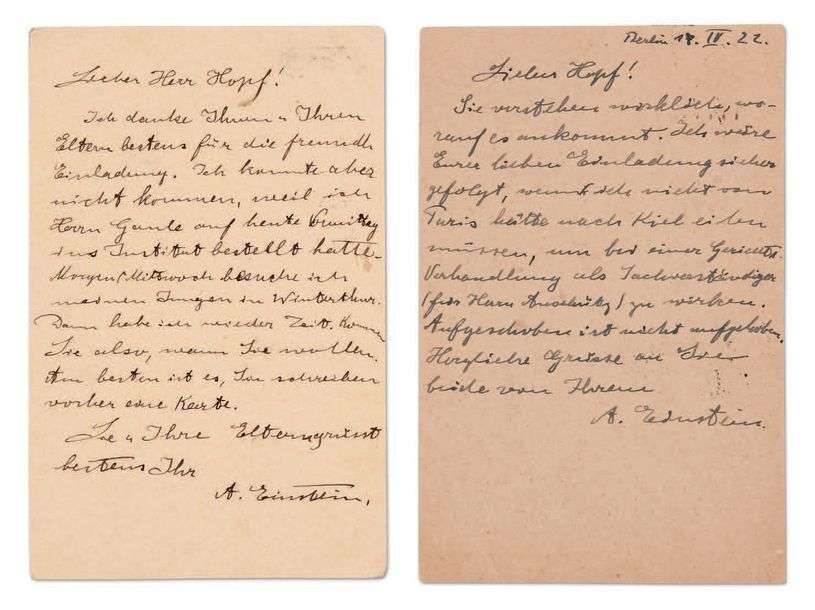 Lieber Herr Hopf!
Ich danke Ihnen u Ihren
Eltern bestens für die freundl.
Einladung. Ich konnte aber
nicht kommen, weil ich
Herrn Gaule auf heute Vormittag
ins Institut bestellt hatte.
Morgen (Mittwoch besuche ich
meinen Jungen in Winterthur.
Dann habe ich wieder Zeit. Kommen
Sie also, wann Sie wollen.
Am besten ist es, Sie schreiben
vorher eine Karte.
Sie u Ihre Eltern grüsst
bestens Ihr
A. Einstein.
Berlin 19. IV. 22.
Lieber Hopf!
Sie verstehen wirklich, wo-
rauf es ankommt. Ich wäre
Eurer lieben Einladung sicher
gefolgt, wenn ich nicht von
Paris hätte nach Kiel eilen
müssen, um bei einer Gerichts-
Verhandlung als Sachverständiger
(für Herrn Anschütz) zu wirken.
Aufgeschoben ist nicht aufgehoben.
Herzliche Grüsse an Sie
beide von Ihrem
A. Einstein.